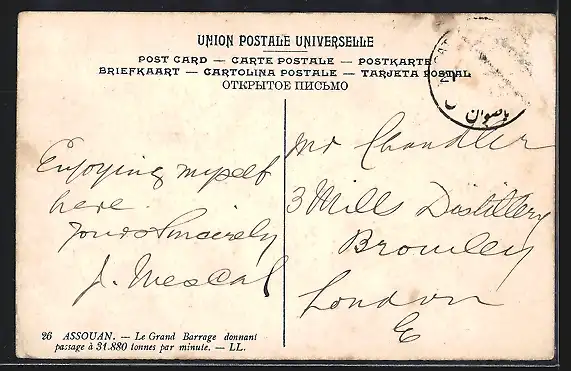 UNION POSTALE UNIVERSELLE
POST CARD — CARTE POSTALE — POSTKARTE
BRIEFKAART — CARTOLINA POSTALE — TARJETA POSTAL
ОТКРЫТОЕ ПИСЬМО
Enjoying myself
here.
Yours Sincerely
J. Mescal
Mr Chandler
3 Mills Distillery
Bromley
London
E
26 ASSOUAN. — Le Grand Barrage donnant
passage à 31.880 tonnes par minute. — LL.